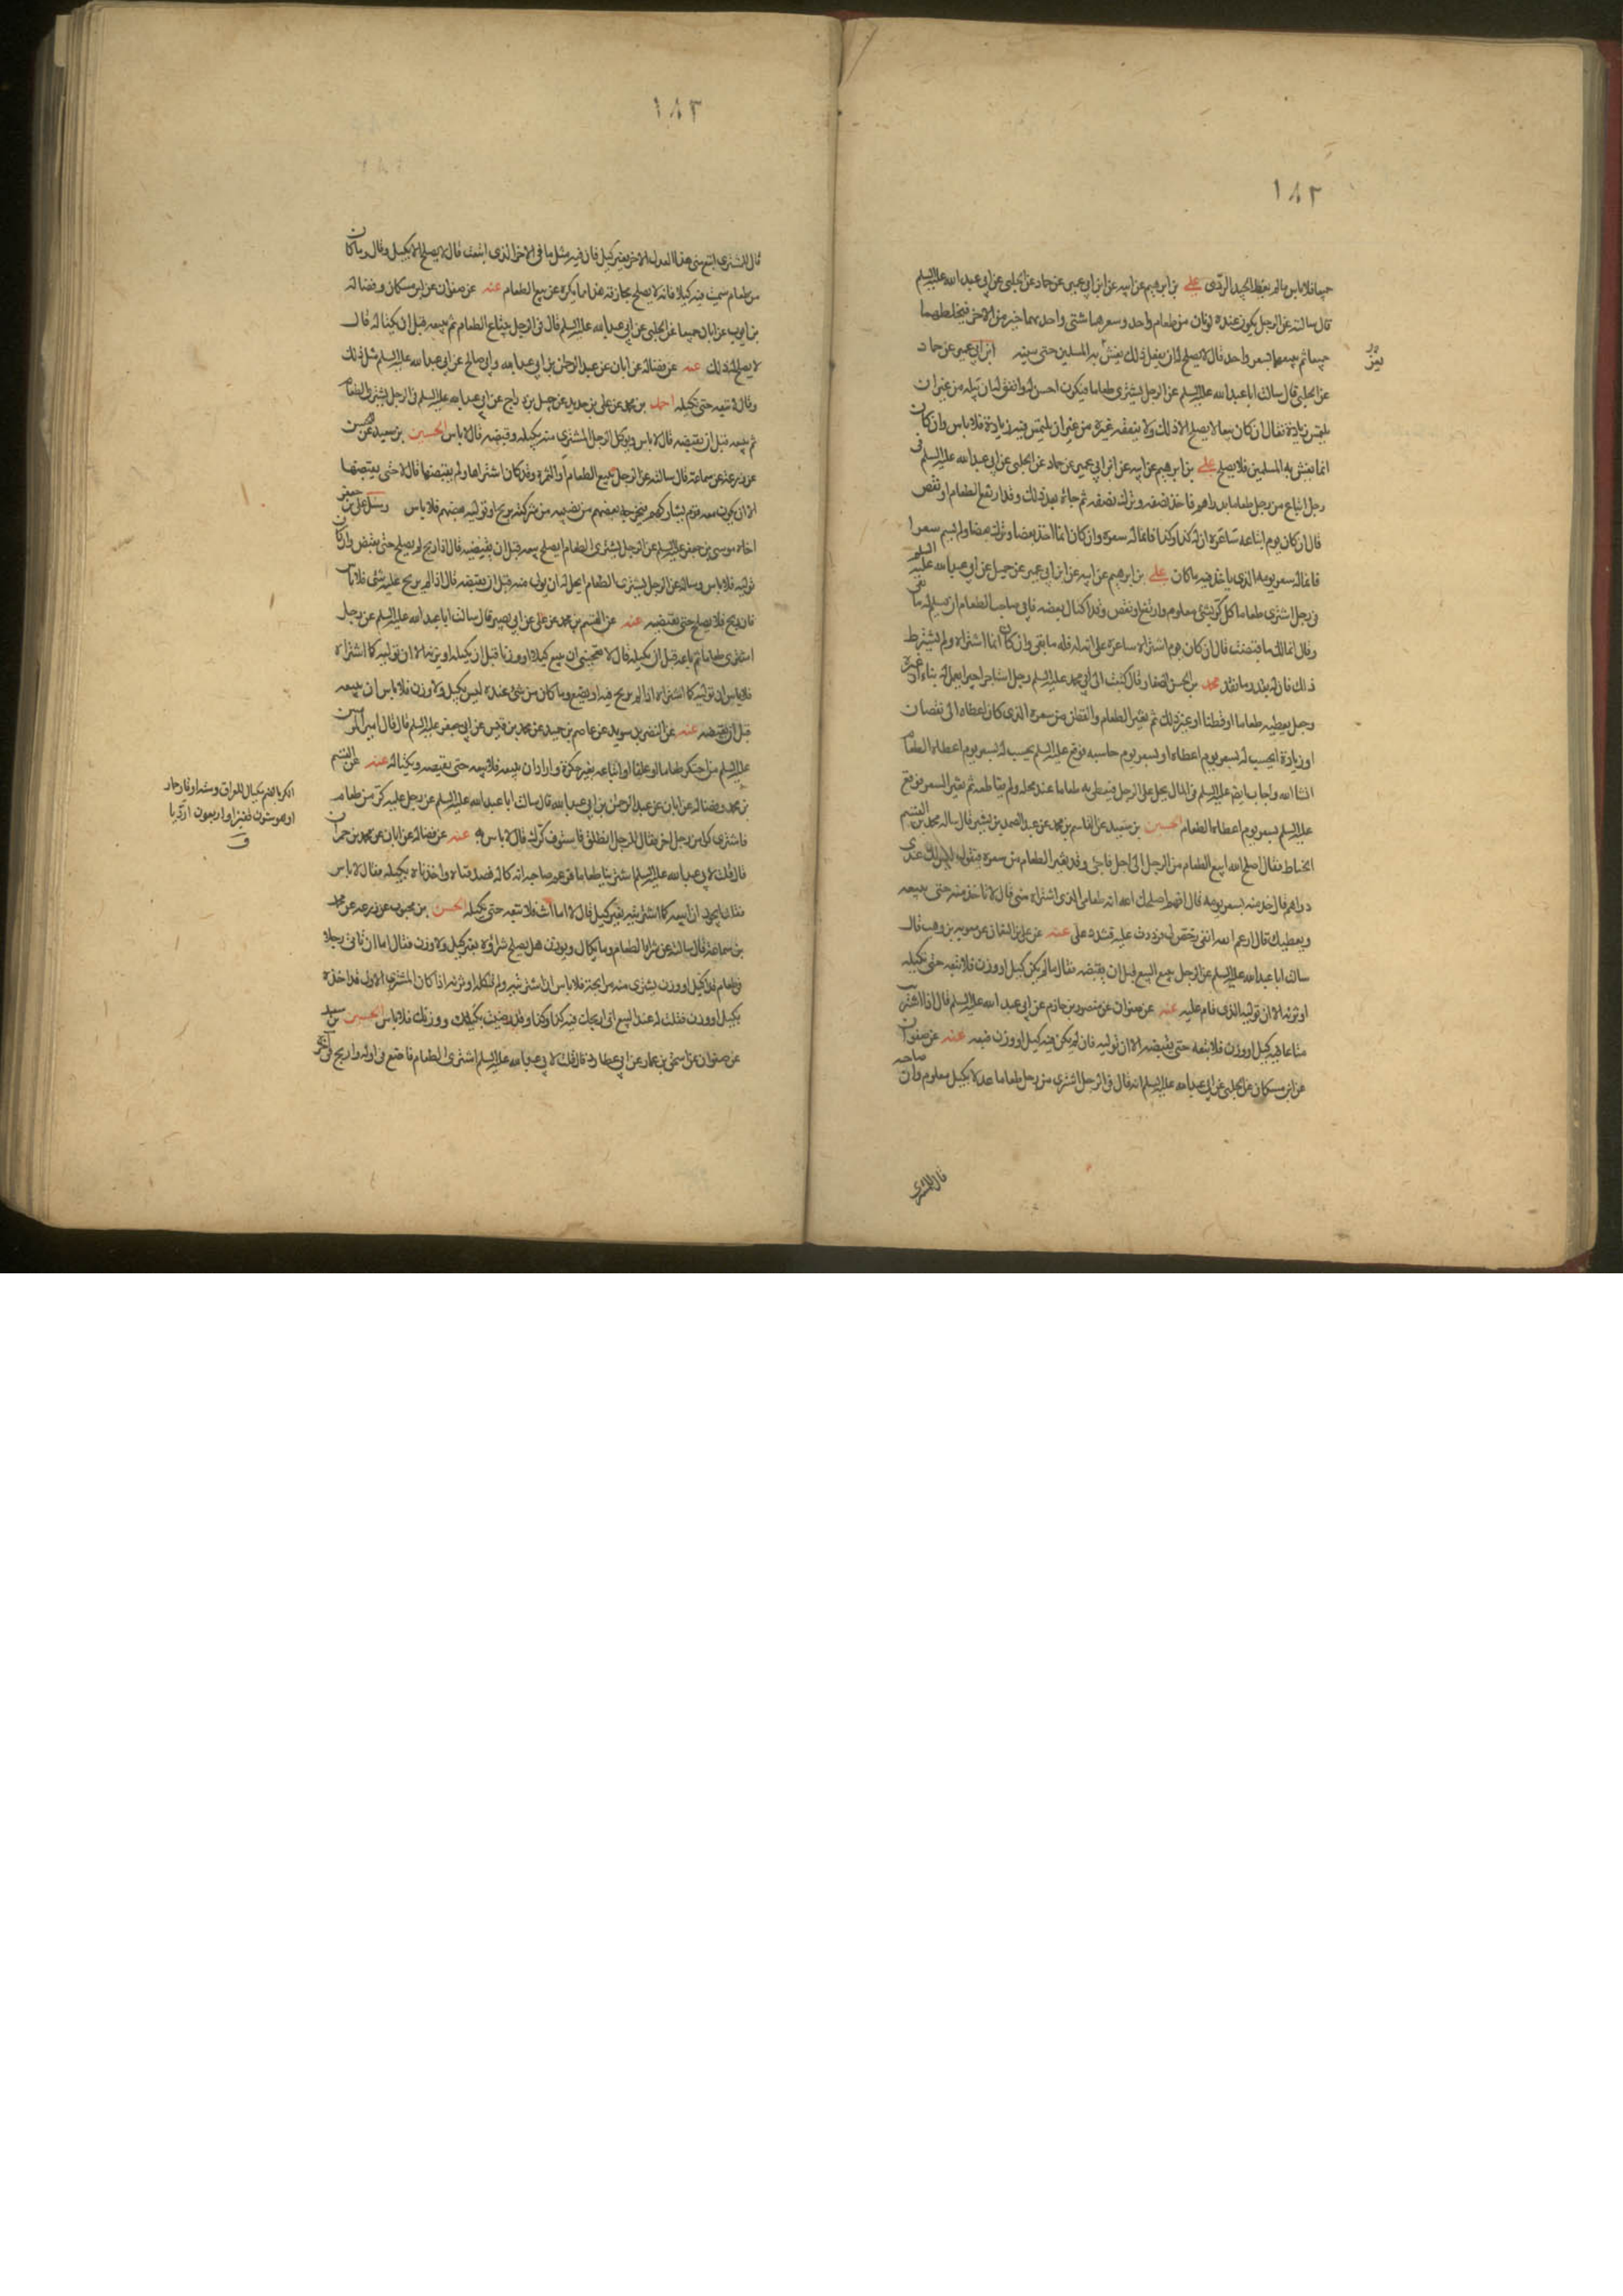 ١٨٢
جميعا فلا باس ما لم يغط الجيد الردى علي بن ابرهيم عن ابيه عن ابن ابي عمير عن حماد عن الحلبي عن ابي عبد الله عليه السلم
قال سالته عن الرجل يكون عنده لونان من طعام واحد وسعرهما شتى واحدهما خير من الاخر فيخلطهما
جميعا ثم يبيعهما بسعر واحد قال لا يصلح له ان يفعل ذلك يغش به المسلمين حتى يبينه ابن ابي عمير عن حماد
عن الحلبي قال سالت ابا عبد الله عليه السلم عن الرجل يشترى طعاما فيكون احسن له وانفق له ان يبله من غير ان
يلتمس زيادة فقال ان كان بيعا لا يصلح الا ذلك ولا ينفقه غيره من غير ان يلتمس فيه زيادة فلا باس وان كان
انما يغش به المسلمين فلا يصلح علي بن ابرهيم عن ابيه عن ابن ابي عمير عن حماد عن الحلبي عن ابي عبد الله عليه السلم في
رجل ابتاع من رجل طعاما بدراهم فاخذ نصفه وترك نصفه ثم جاءه بعد ذلك وقد ارتفع الطعام او نقص
قال ان كان يوم ابتاعه ساعره ان له كذا وكذا فانما له سعره وان كان انما اخذ بعضا وترك بعضا ولم يسم سعرا
فانما له سعر يومه الذى ياخذ فيه ما كان علي بن ابرهيم عن ابيه عن ابن ابي عمير عن جميل عن ابي عبد الله عليه السلم
في رجل اشترى طعاما كل كر بشئ معلوم وارتفع او نقص وقد اكتال بعضه فابى صاحب الطعام ان يسلم له ما بقى
وقال انما لك ما قبضت قال ان كان يوم اشتراه ساعره على انه له فله ما بقى وان كان انما اشتراه ولم يشترط
ذلك فان له بقدر ما نقد محمد بن الحسن الصفار قال كتبت الى ابي محمد عليه السلم رجل استاجر اجيرا يعمل له بناء او غيره
وجعل يعطيه طعاما او قطنا او غير ذلك ثم تغير الطعام والقطن من سعره الذى كان اعطاه الى نقصان
او زيادة ايحسب له بسعر يوم اعطاه او بسعر يوم حاسبه فوقع عليه السلم يحسب له بسعر يوم اعطاه الطعام
انشا الله واجاب ايضا عليه السلم في المال يحل على الرجل فيعطى به طعاما عند محله ولم يقاطعه ثم تغير السعر فوقع
عليه السلم بسعر يوم اعطاه الطعام الحسين بن سعيد عن القاسم بن محمد عن عبد الصمد بن بشير قال ساله محمد بن القسم
الحناط فقال اصلحك الله ابيع الطعام من الرجل الى اجل فاجئ وقد تغير الطعام من سعره فيقول ليس لك عندى
دراهم قال خذ منه بسعر يومه قال افهم اصلحك الله انه طعامى الذى اشتراه منى قال لا تاخذ منه حتى يبيعه
ويعطيك قال ارغم الله انفى رخص لى فرددت عليه فشدد على عنه عن علي بن النعمان عن معوية بن وهب قال
سالت ابا عبد الله عليه السلم عن الرجل يبيع البيع قبل ان يقبضه فقال ما لم يكن كيل او وزن فلا تبعه حتى تكيله
او تزنه الا ان توليه الذى قام عليه عنه عن صفوان عن منصور بن حازم عن ابي عبد الله عليه السلم قال اذا اشتريت
متاعا فيه كيل او وزن فلا تبعه حتى تقبضه الا ان توليه فان لم يكن فيه كيل او وزن فبعه عنه عن صفوان
عن ابن مسكان عن الحلبي عن ابي عبد الله عليه السلم انه قال في الرجل اشترى من رجل طعاما عدلا بكيل معلوم وان صاحبه
قال للمشترى
١٨٣
قال للمشترى ابتع منى هذا العدل الاخر بغير كيل فان فيه مثل ما في الاخر الذى ابتعت قال لا يصلح الا بكيل وقال وما كان
من طعام سميت فيه كيلا فانه لا يصلح مجازفة هذا مما يكره من بيع الطعام عنه عن صفوان عن ابن مسكان وفضالة
بن ايوب عن ابان جميعا عن الحلبي عن ابي عبد الله عليه السلم قال في الرجل يبتاع الطعام ثم يبيعه قبل ان يكتاله قال
لا يصلح له ذلك عنه عن فضالة عن ابان عن عبد الرحمن بن ابي عبد الله وابي صالح عن ابي عبد الله عليه السلم مثل ذلك
وقال لا تبعه حتى تكيله احمد بن محمد عن علي بن حديد عن جميل بن دراج عن ابي عبد الله عليه السلم في الرجل يشترى الطعام
ثم يبيعه قبل ان يقبضه قال لا باس ويوكل الرجل المشترى منه بكيله وقبضه قال لا باس الحسين بن سعيد عن الحسن
عن زرعة عن سماعة قال سالته عن الرجل يبيع الطعام او الثمرة وقد كان اشتراها ولم يقبضها قال لا حتى يقبضها
الا ان يكون معه قوم يشاركهم فيخرجه بعضهم من نصيبه من شركته بربح او توليه بعضهم فلا باس وسئل علي بن جعفر
اخاه موسى بن جعفر عليه السلم عن الرجل يشترى الطعام ايصلح بيعه قبل ان يقبضه قال اذا ربح لم يصلح حتى يقبض وان كان
توليه فلا باس وساله عن الرجل يشترى الطعام ايحل له ان يولى منه قبل ان يقبضه قال اذا لم يربح عليه شئ فلا باس
فان ربح فلا يصلح حتى يقبضه عنه عن القسم بن محمد عن علي عن ابي بصير قال سالت ابا عبد الله عليه السلم عن رجل
اشترى طعاما ثم باعه قبل ان يكيله قال لا يعجبنى ان يبيع كيلا او وزنا قبل ان يكيله او يزنه الا ان توليه كما اشتراه
فلا باس ان توليه كما اشتراه اذا لم يربح فيه او يضع وما كان من شئ عنده ليس بكيل ولا وزن فلا باس ان يبيعه
قبل ان يقبضه عنه عن النضر بن سويد عن عاصم بن حميد عن محمد بن قيس عن ابي جعفر عليه السلم قال قال امير المومنين
عليه السلم من احتكر طعاما او علفا او ابتاعه بغير حكرة واراد ان يبيعه فلا يبيعه حتى يقبضه ويكتاله عنه عن القسم
بن محمد وفضالة عن ابان عن عبد الرحمن بن ابي عبد الله قال سالت ابا عبد الله عليه السلم عن رجل عليه كر من طعام
فاشترى كرا من رجل اخر فقال للرجل انطلق فاستوف كرك قال لا باس به عنه عن فضالة عن ابان عن محمد بن حمران
قال قلت لابي عبد الله عليه السلم اشترينا طعاما فزعم صاحبه انه كاله فصدقناه واخذناه بكيله فقال لا باس
فقلت ايجوز ان ابيعه كما اشتريته بغير كيل قال لا اما انت فلا تبعه حتى تكيله الحسن بن محبوب عن زرعه عن محمد
بن سماعة قال سالته عن شراء الطعام وما يكال ويوزن هل يصلح شراؤه بغير كيل ولا وزن فقال اما ان تاتى رجلا
في طعام قد كيل او وزن يشترى منه مرابحة فلا باس ان اشتريته ولم تكله او تزنه اذا كان المشترى الاول قد اخذه
بكيل او وزن فقلت له عند البيع انى اربحك فيه كذا وكذا وقد رضيت بكيلك ووزنك فلا باس الحسين بن سعيد
عن صفوان عن اسحق بن عمار عن ابي عطارد قال قلت لابي عبد الله عليه السلم اشترى الطعام فاضع في اوله واربح في اخره
الكر بالضم مكيال للعراق وستة اوقار حمار
او هو ستون قفيزا او اربعون اردبا
ق